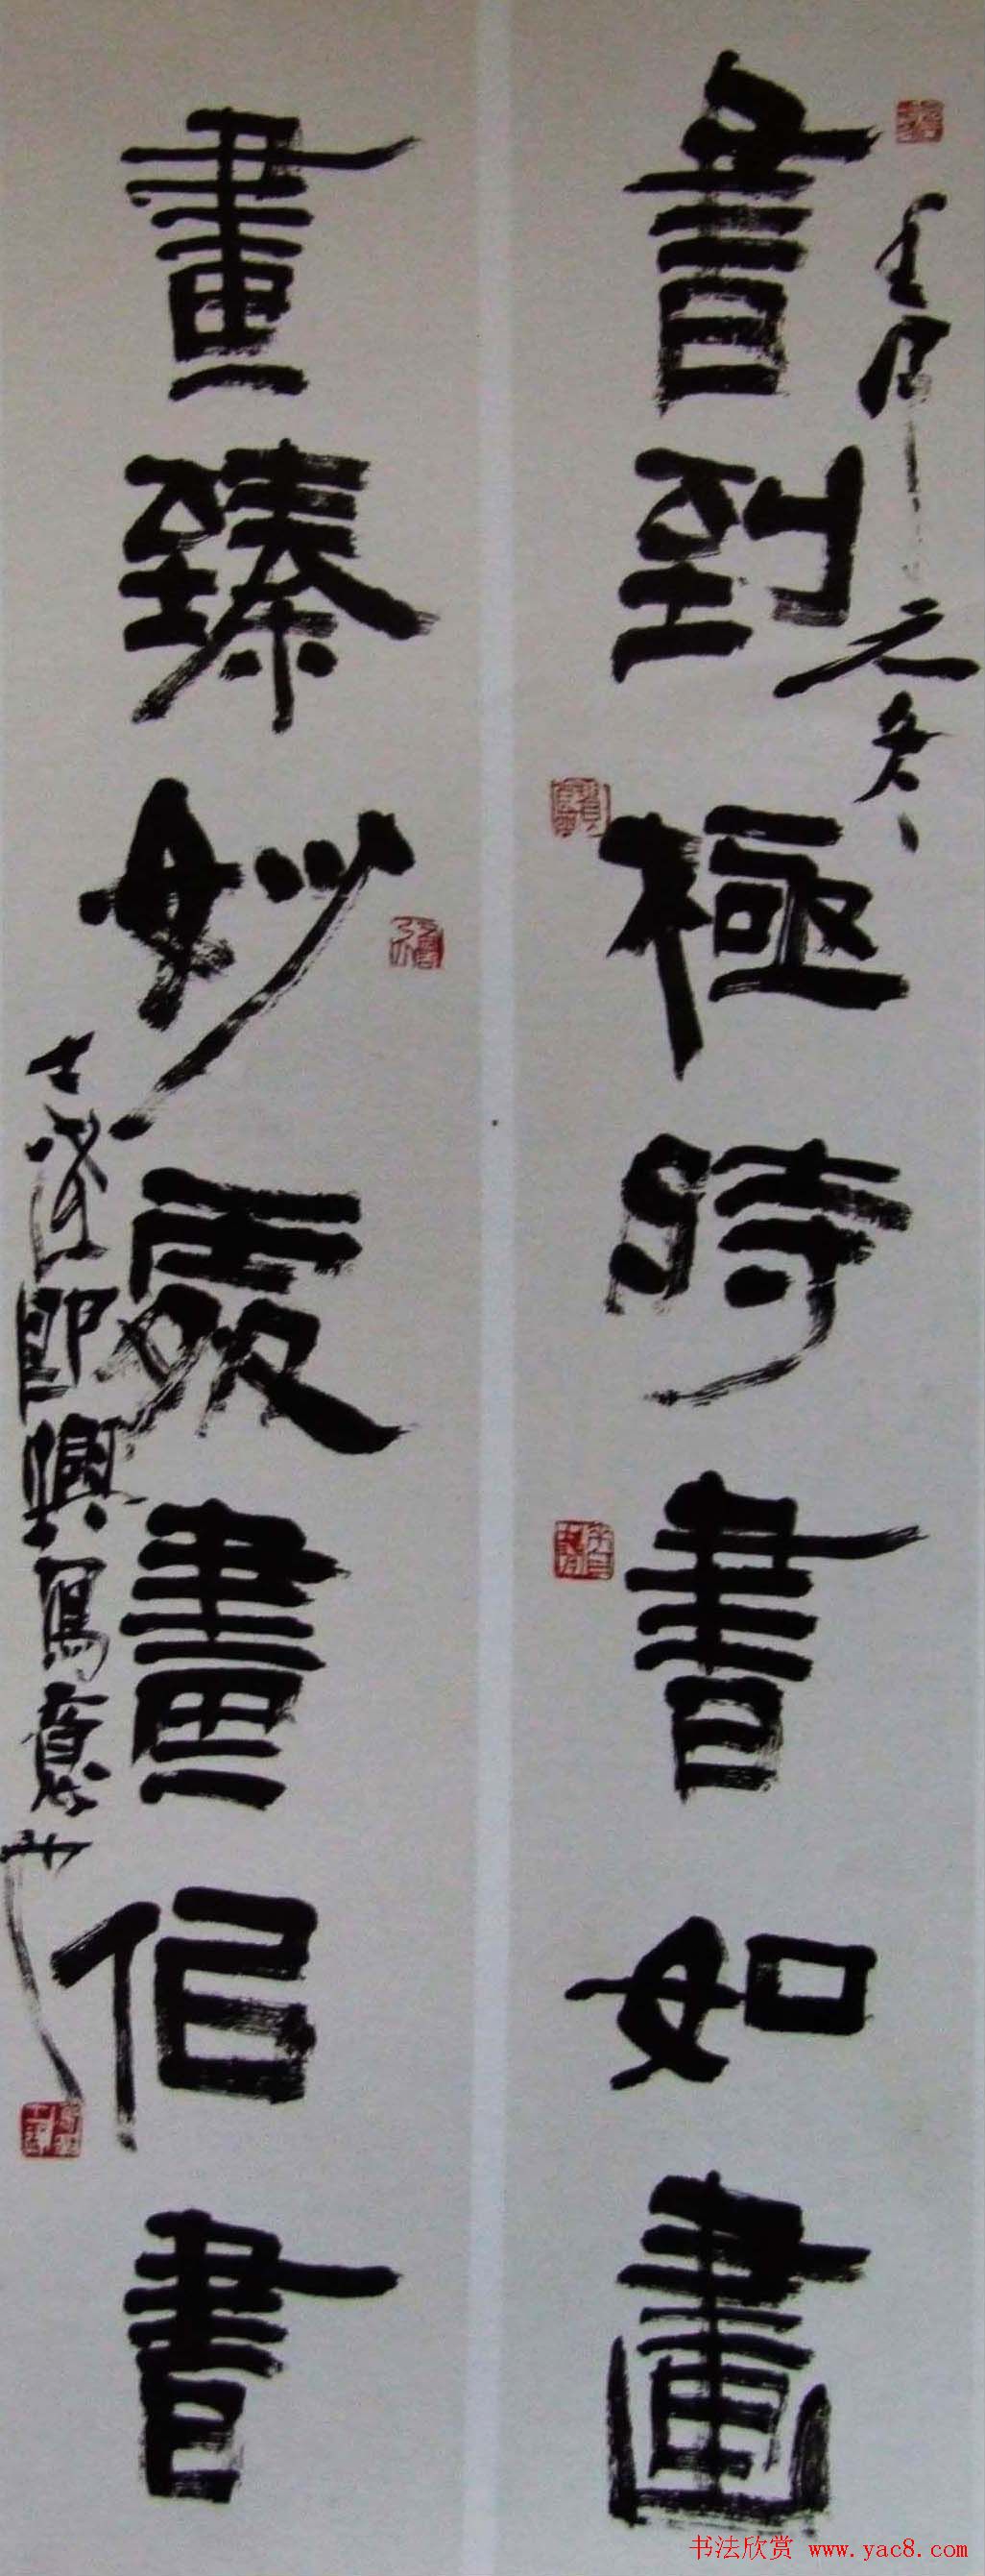 壬辰元冬
書到極時書如畫
畫臻妙處畫佀書
即興寫意
书法欣赏 www.yac8.com